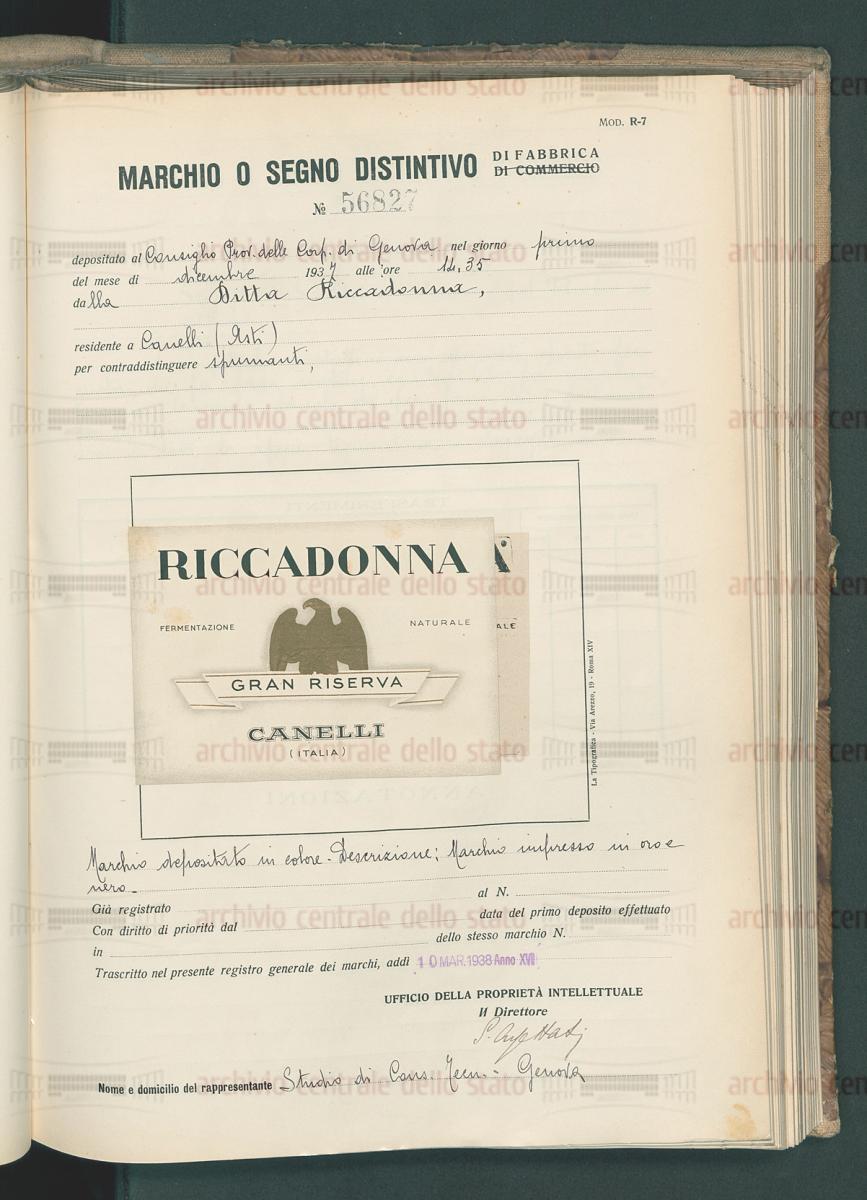 MOD. R-7
MARCHIO O SEGNO DISTINTIVO DI FABBRICA
DI COMMERCIO
№ 56827
depositato al Consiglio Prov. delle Corp. di Genova nel giorno primo
del mese di dicembre 1937 alle ore 11,35
dalla Ditta Riccadonna,
residente a Canelli (Asti)
per contraddistinguere spumanti,
RICCADONNA A
FERMENTAZIONE NATURALE ALE
GRAN RISERVA
CANELLI
(ITALIA)
La Tipografica - Via Arezzo, 19 - Roma XIV
Marchio depositato in colore - Descrizione: Marchio impresso in oro e
nero -
Già registrato al N.
Con diritto di priorità dal data del primo deposito effettuato
in dello stesso marchio N.
Trascritto nel presente registro generale dei marchi, addì 10 MAR. 1938 Anno XVI
UFFICIO DELLA PROPRIETÀ INTELLETTUALE
Il Direttore
Nome e domicilio del rappresentante Studio di Cons. Tecn. - Genova
archivio centrale dello stato